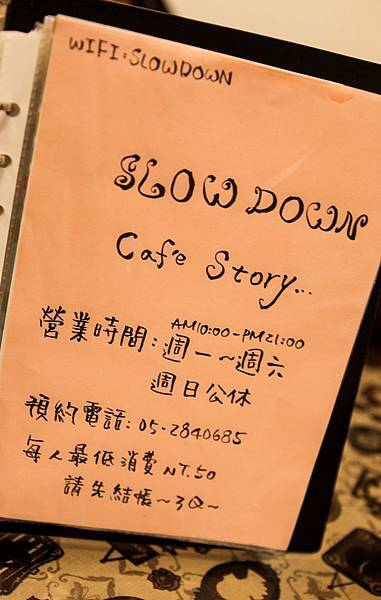 WIFI:SLOWDOWN
SLOW DOWN
Caf'e Story...
AM10:00-PM21:00
營業時間:週一~週六
週日公休
預約電話:05-2840685
每人最低消費NT.50
請先結帳~3Q~